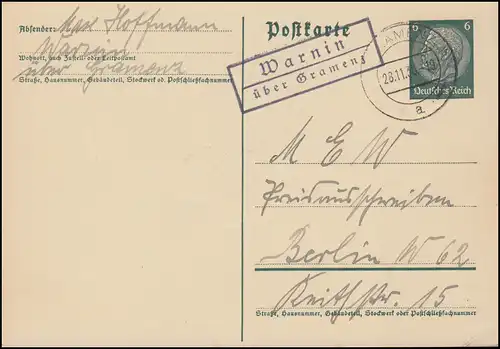 Absender:
Max Hoffmann
Warnin
Wohnort, auch Zustell- oder Leitpostamt
über Gramenz
Straße, Hausnummer, Gebäudeteil, Stockwerk od. Postschließfachnummer
Postkarte
Warnin
über Gramenz
28.11.
a
6 6
Deutsches Reich
M E W
Preisausschreiben
Berlin W 62
Keithstr. 15
Straße, Hausnummer, Gebäudeteil, Stockwerk oder Postschließfachnummer